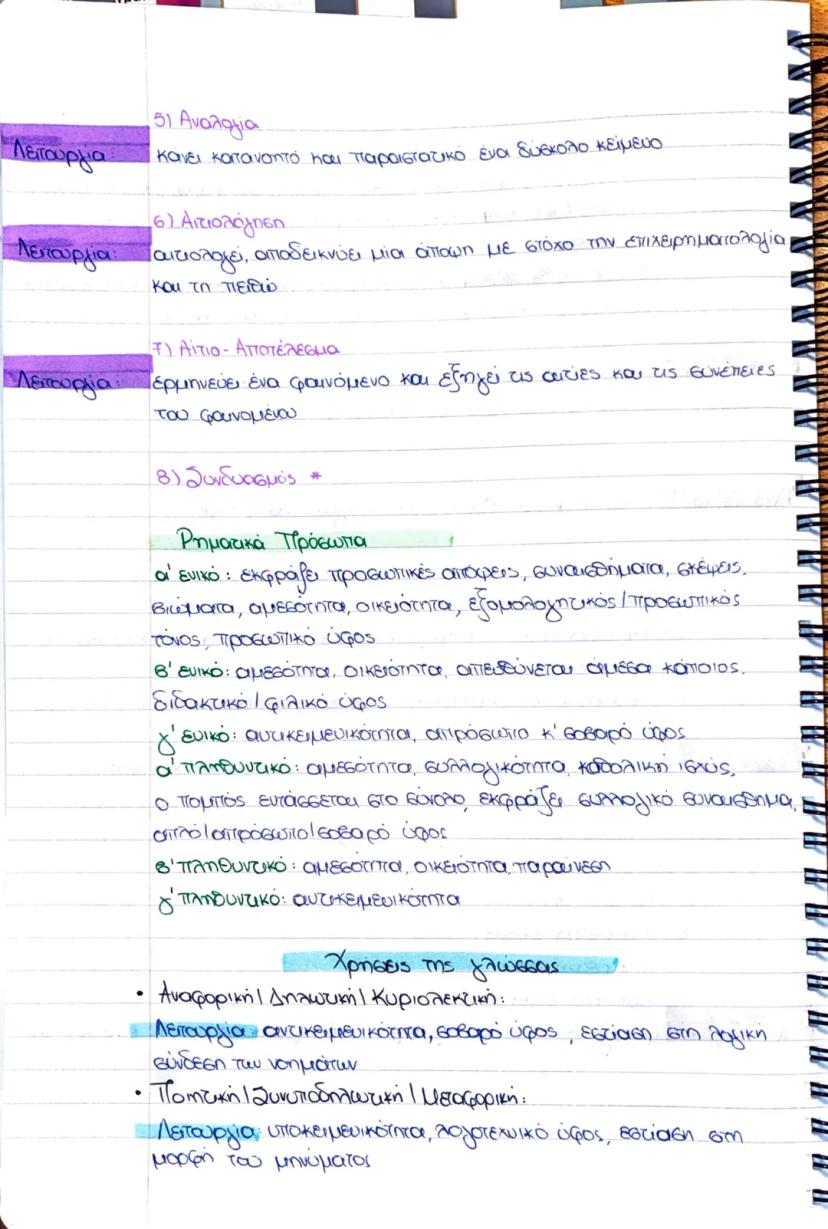 5) Αναλογία
Λειτουργία: κάνει κατανοητό και παραστατικό ένα δύσκολο κείμενο
6) Αιτιολόγηση
Λειτουργία: αιτιολογεί, αποδεικνύει μία άποψη με στόχο την επιχειρηματολογία
και τη πειθώ
7) Αίτιο - Αποτέλεσμα
Λειτουργία: ερμηνεύει ένα φαινόμενο και εξηγεί τις αιτίες και τις συνέπειες
του φαινομένου
8) Συνδυασμός *
Ρηματικά Πρόσωπα
α' ενικό: εκφράζει προσωπικές απόψεις, συναισθήματα, σκέψεις,
βιώματα, αμεσότητα, οικειότητα, εξομολογητικός/προσωπικός
τόνος, προσωπικό ύφος
β' ενικό: αμεσότητα, οικειότητα, απευθύνεται άμεσα κάποιος,
διδακτικό/φιλικό ύφος
γ' ενικό: αντικειμενικότητα, απρόσωπο κ' σοβαρό ύφος
α' πληθυντικό: αμεσότητα, συλλογικότητα, καθολική ισχύς,
ο πομπός εντάσσεται στο σύνολο, εκφράζει συλλογικό συναίσθημα,
απλό/απρόσωπο/σοβαρό ύφος
β' πληθυντικό: αμεσότητα, οικειότητα, παραίνεση
γ' πληθυντικό: αντικειμενικότητα
Χρήσεις της γλώσσας
• Αναφορική/Δηλωτική/Κυριολεκτική:
Λειτουργία: αντικειμενικότητα, σοβαρό ύφος, εστίαση στη λογική
σύνδεση των νοημάτων
• Ποιητική/Συνυποδηλωτική/Μεταφορική:
Λειτουργία: υποκειμενικότητα, λογοτεχνικό ύφος, εστίαση στη
μορφή του μηνύματος